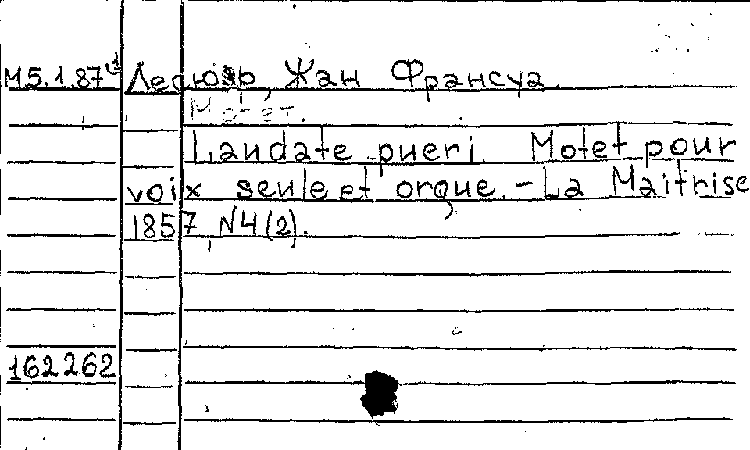 М5.1.87 Лесюэр, Жан Франсуа
Motet.
Laudate pueri Motet pour
voix seule et orgue. - La Maitrise
1857, N4 (2).
162262